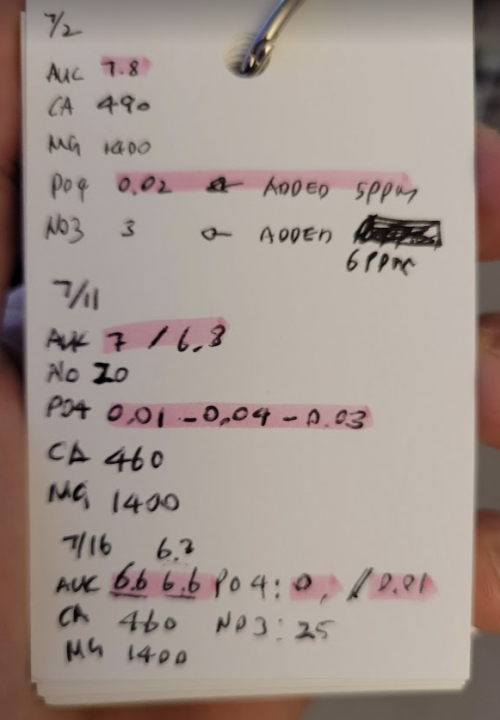 7/2
ALK 7.8
CA 490
MG 1400
PO4 0.02 ← ADDED 5ppm
NO3 3 ← ADDED
6ppm
7/11
ALK 7 / 6.8
NO 20
PO4 0.01 - 0.04 - 0.03
CA 460
MG 1400
7/16 6.2
ALK 6.6 6.6 PO4: 0, / 0.01
CA 460 NO3: 25
MG 1400